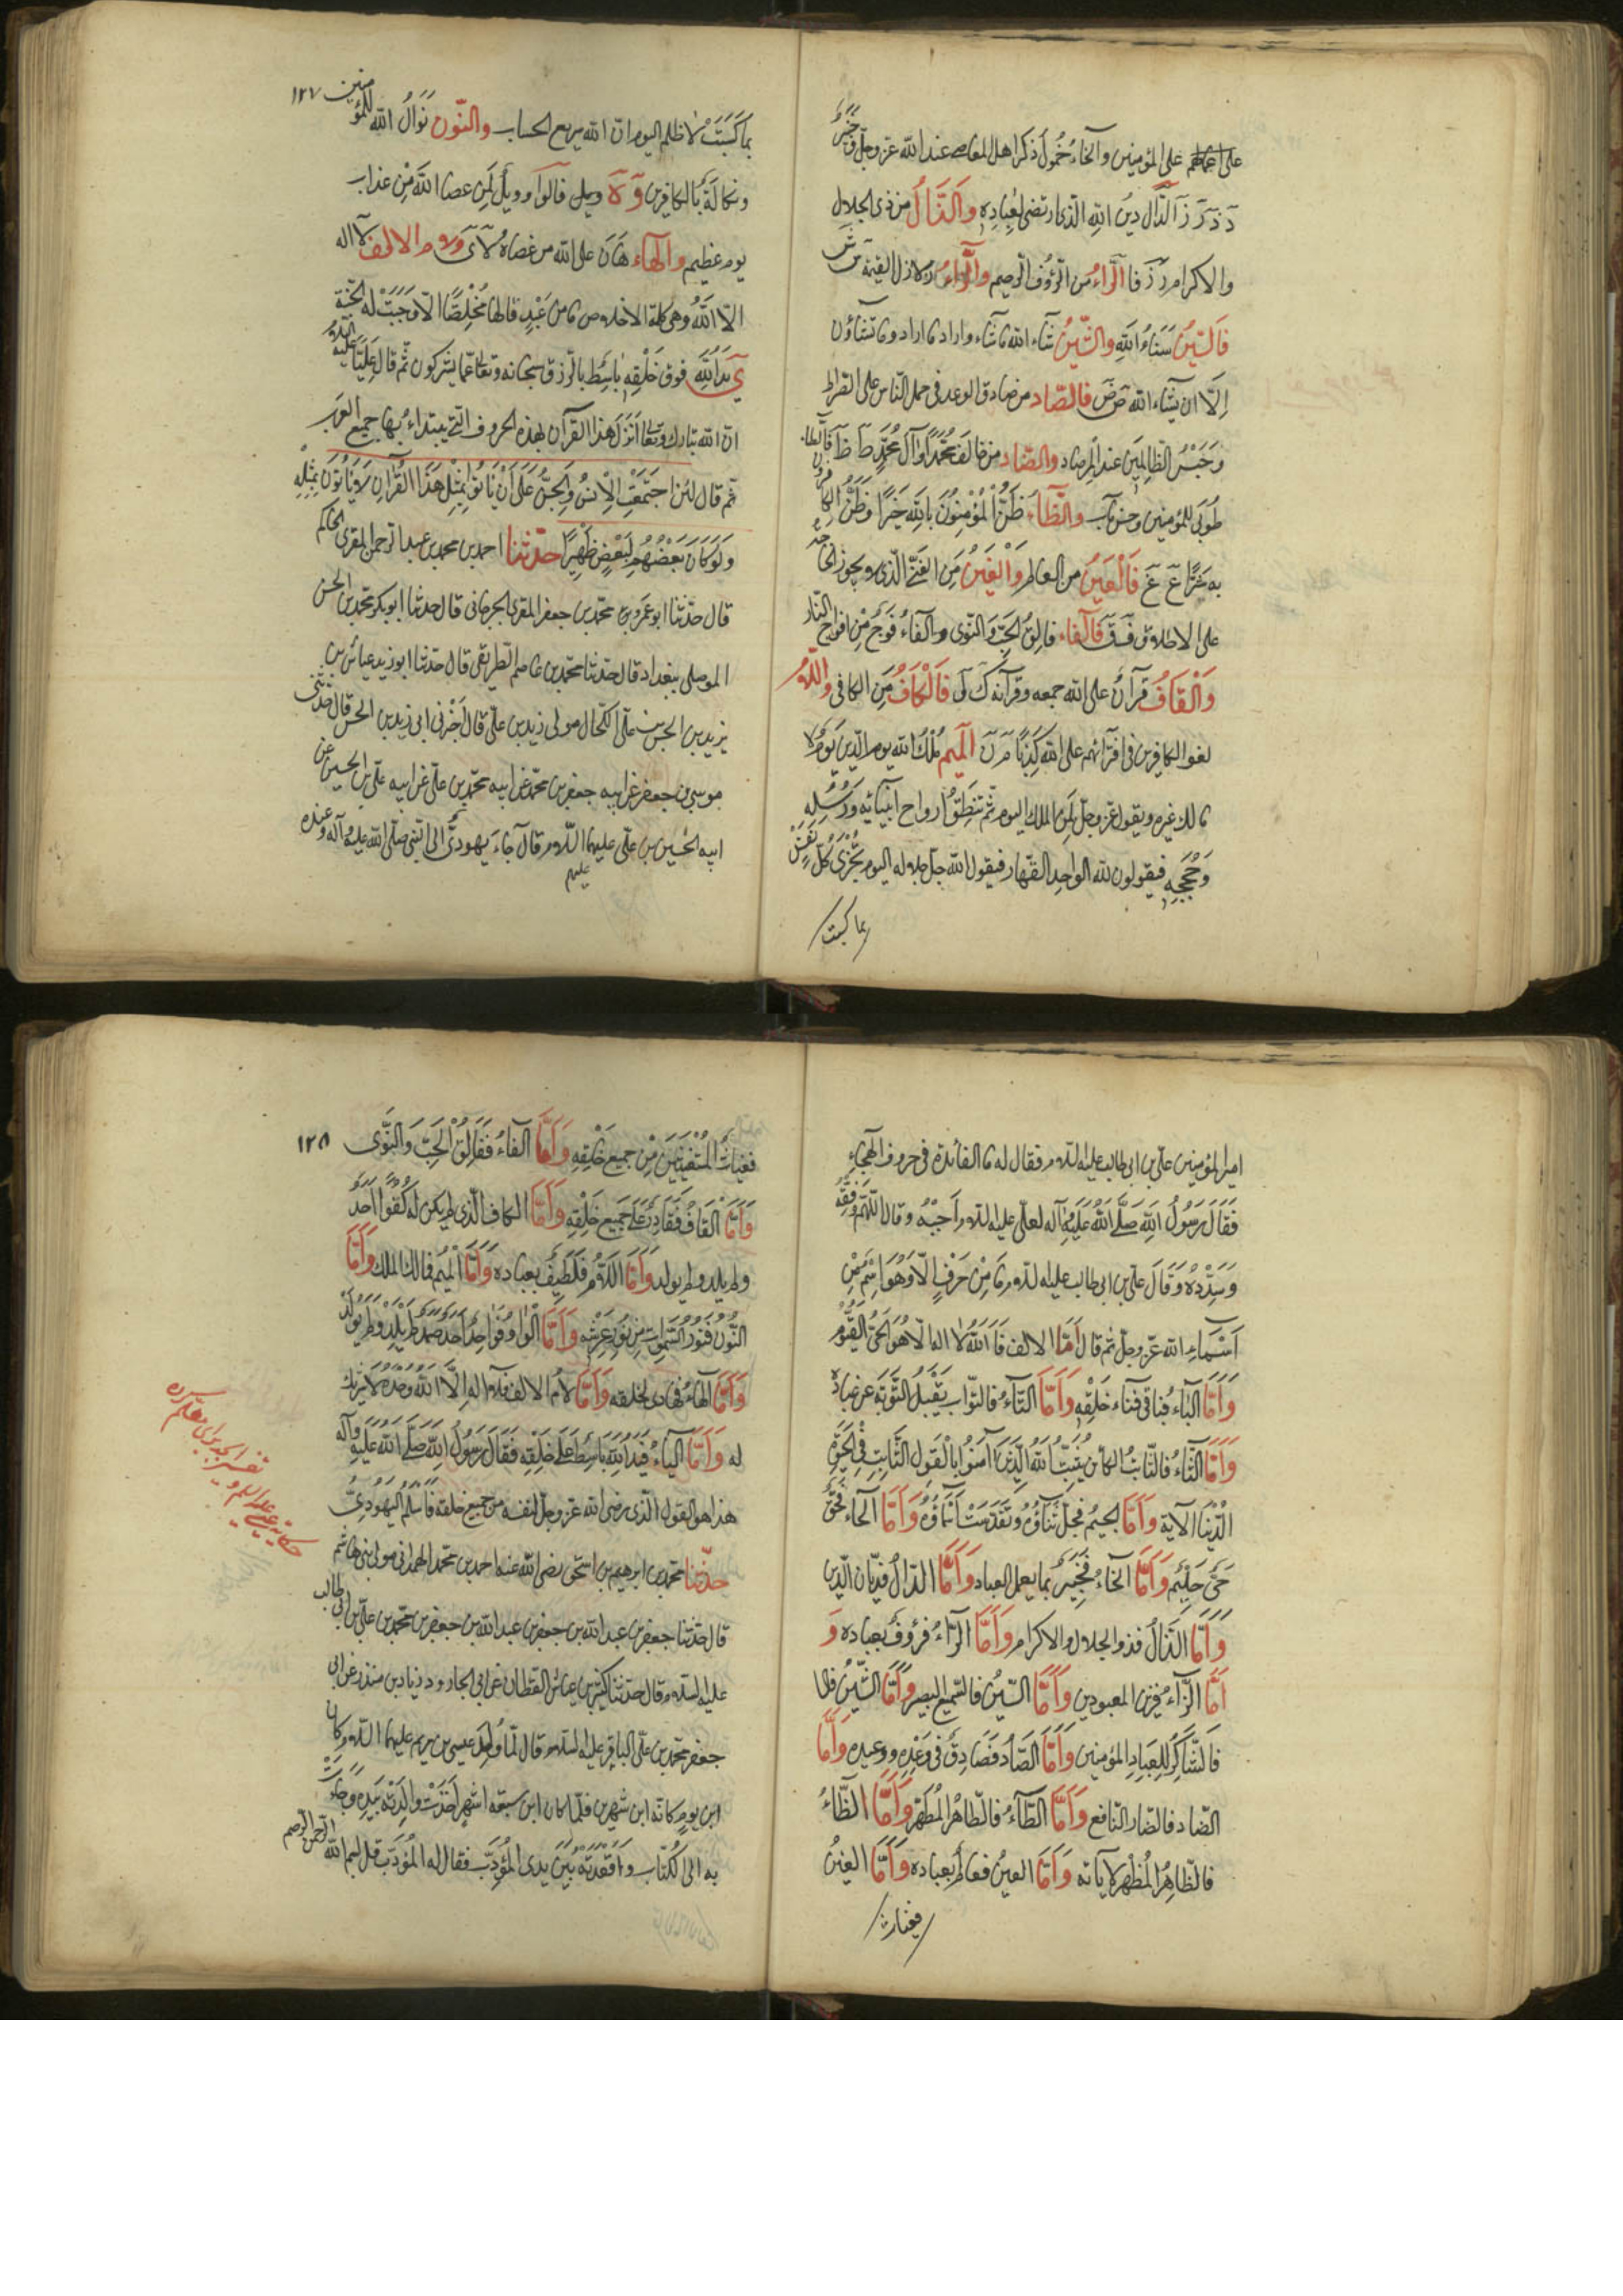 على اعمالهم على المؤمنين والخاء خُمُولُ ذكر اهل المعاصى عند الله عزّ وجلّ وخَبيرٌ
دَ ذَ رَ زَ الدّال دينُ اللهِ الّذى ارتضى لِعِبادِه والذّالُ من ذى الجلال
والاكرام رَ زَ فالرّاءُ مِن الرّؤف الرّحيم والزّاءُ زلازل القيمة سَ شَ
فَالسّينُ سَناءُ اللهِ والشّينُ شاء الله ما شاء واراد ما اراد وما تشاؤن
اِلّا ان يشاء الله صَ ضَ فالصّاد من صادق الوعد فى حمل النّاس على الصّراط
وَحَبْسُ الظّالِمين عند المرصاد والضّاد من خالَفَ محمّدًا وآل محمّدٍ طَ ظَ فالطاء
طُوبى للمؤمنين وحسن مآب والظّاء ظَنُّ المُؤمنُونَ بالله خَيرًا وظَنَّ الكافرون
به شرًّا عَ غَ فَالْعَينُ من العالم وَالْغَينُ مِن الغَنِىّ الّذى لا يجوز عليه الحاجة
على الاطلاق فَ قَ فَالفاء فالِقُ الحَبِّ وَالنّوى والفاءُ فَوجٌ مِن افواج النّار
وَالْقافُ قرآنٌ على الله جمعه وقرآنه كَ لَ فَالْكافُ مِن الكافى واللّام
لغو الكافرين فى افترائهم على الله كَذِبًا مَ نَ الميم مُلْكُ الله يوم الدّين يَومَ لا
مالك غيره ويقول عزّ وجلّ لِمَن الملك اليوم ثمّ تنطق ارواح انبيائه ورُسُلِه
وَحُجَجِه فيقولون لله الواحِد القَهّار فيقول الله جلّ جلاله اليوم تُجْزى كُلُّ نَفْسٍ
بما كسبت
١٢٧
بما كَسَبَتْ لا ظلم اليوم انّ الله سريع الحساب والنّون نَوالُ الله للمؤمنين
ونكالَهُ بالكافرين وَ هَ ويل فالواو ويلٌ لِمَن عصا اللهَ مِن عذاب
يوم عظيم والهاء هانَ على الله من عَصاه لا ىَ ولام الالف لا اله
الّا اللهُ وهى كلمة الاخلاص ما من عَبْدٍ قالها مُخلِصًا الّا وَجَبَتْ له الجنّة
ى يَدُ اللهِ فوق خَلْقِه باسِط بالرّزق سبحانه وتعا عمّا يشركون ثمّ قال عَلِىّ عليه السّلام
انّ الله تبارك وتعا انزل هذا القرآن بهذه الحروف الّتى يبتداءُ بها جميع العرب
ثم قال لئن اجتَمَعَتِ الاِنسُ وَالجِنُّ عَلى اَنْ يَأتُوا بِمِثْلِ هَذا القُرآنِ لا يَأتُونَ بِمِثْلِهِ
وَلَو كانَ بَعْضُهُم لِبَعْضٍ ظَهِيرًا حدّثنا احمد بن محمد بن عبد الرحمن المقرى الحاكم
قال حدّثنا ابو عمرو بن محمّد بن جعفر المقرى الجرجانى قال حدثنا ابو بكر محمّد بن الحسن
الموصلى ببغداد قال حدّثنا محمّد بن عاصم الطّريفى قال حدّثنا ابو زيد عيّاش بن
يزيد بن الحسن بن علىّ الكحّال مولى زيد بن علىّ قال اَخبرنى ابى زيد بن الحسن قال حدّثنى
موسى بن جعفر عن ابيه جعفر بن محمّد عن ابيه محمّد بن علىّ عن ابيه علىّ بن الحسين عن
ابيه الحُسين بن على عليهم السّلام قال جاء يَهودىٌّ الى النّبىّ صلّى الله عليه وآله وعنده
عليهم
امير المؤمنين علىّ بن ابى طالب عليه السّلام فقال له ما الفائدة فى حروف الهجاء
فقال رَسُولُ اللهِ صَلّى اللهُ عَلَيْهِ وآله لعلى عليه السّلام اَجِبْهُ وقال اللّهمّ وَفِّقْهُ
وَسَدِّدهُ وَقالَ علىّ بن ابى طالب عليه السّلام ما مِنْ حَرْفٍ الّا وَهُوَ اسْمٌ مِنْ
اَسْماءِ الله عزّ وجلّ ثم قال اَمّا الالف فَاللهُ لا اله الّا هُوَ الحَىُّ القَيُّوم
وَاَمّا البَاءُ فباقى فناء خَلْقِه وَاَمّا التّاءُ فالتّواب يَقْبَلُ التّوبَةَ عن عباده
وَاَمّا الثّاءُ فالثّابتُ الكائن يُثَبّتُ اللهُ الّذينَ آمَنُوا بِالْقَولِ الثّابِتِ فى الحَيوةِ
الدُّنيا الآية وَاَمّا الجيمُ فجلّ ثناؤُه وتَقَدّسَتْ اَسماؤُه وَاَمّا الحاءُ فَحَقٌّ
حَىٌّ حَليمٌ وَاَمّا الخاءُ فَخَبيرٌ بما يعمل العباد وَاَمّا الدّالُ فديّان الدّين
وَاَمّا الذّالُ فذو الجلال والاكرام وَاَمّا الرّاءُ فرؤفٌ بعباده وَ
اَمّا الزّاءُ فزين المعبودين وَاَمّا السّينُ فالسّميع البصير وَاَمّا الشّينُ
فالشّاكِرُ لِلعِبادِ المؤمنين وَاَمّا الصّادُ فصادِقٌ فى وَعْدِه ووعيده وَاَمّا
الضّاد فالضّار النّافع وَاَمّا الطّاءُ فالطّاهرُ المُطَهّر وَاَمّا الظّاءُ
فالظّاهرُ المُظْهِرُ لآياته وَاَمّا العينُ فعالمٌ بعباده وَاَمّا الغينُ
فغياث
١٢٨
فغياثُ المُسْتَغيثينَ مِنْ جميعِ خَلْقِه وَاَمّا الفاءُ فَفالِقُ الحَبِّ وَالنّوى
وَاَمّا القافُ فَقادِرٌ عَلى جَميعِ خَلْقِه وَاَمّا الكاف الّذى لم يكن لَه كُفُوًا اَحَدٌ
ولم يلد ولم يولد وَاَمّا اللّامُ فَلَطيفٌ بعباده وَاَمّا الميمُ فمالك الملك وَاَمّا
النّونُ فَنُورُ السّمٰوات مِن نُورِ عَرْشِه وَاَمّا الواوُ فَواحِدٌ اَحَدٌ صَمَدٌ لَم يَلِدْ وَلَم يُولَدْ
وَاَمّا الهاءُ فهادى لخلقه وَاَمّا لامُ الالف فلا اله اِلّا الله وحده لا شريك
له وَاَمّا الياءُ فَيَدُ اللهِ باسِطةٌ عَلى خَلْقِه فقالَ رَسُولُ اللهِ صَلّى الله عَلَيهِ وآله
هذا هو القول الّذى رضى الله عزّ وجلّ لنفسه من جميع خلقه فاَسْلَمَ اليَهُودِىّ
حدّثنا محمّد بن ابرهيم بن اسحق رضى الله عنه احمد بن محمّد الهمدانى مولى بنى هاشم
قال حدّثنا جعفر بن عبد الله بن جعفر بن عبد الله بن جعفر بن محمّد بن علىّ بن ابى طالب
عليه السّلام قال حدّثنا كثير بن عيّاش القطّان عن ابى الجارود زياد بن منذر عن ابى
جعفر محمّد بن علىّ الباقر عليه السّلام قال لمّا وُلِدَ عيسى بن مريم عليهما السّلام كان
ابن يومٍ كانّه ابن شهرين فلمّا كان ابن سبعة اشهرٍ اَخَذَتْ والِدَتُه بِيَدِه وجاءت
به الى الكُتّاب واَقْعَدَتْهُ بَيْنَ يدى المُؤدِّب فقال له المُؤدِّب قل بسم الله الرّحمن الرّحيم